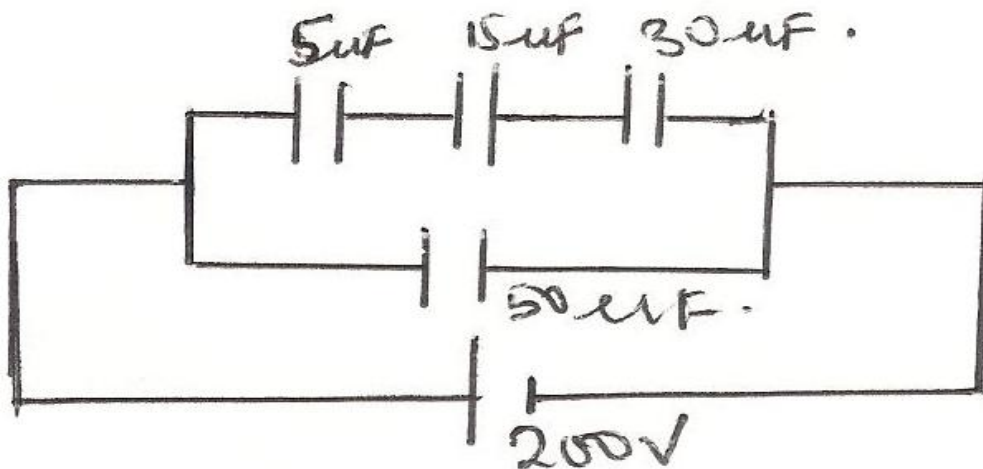 5uF 15uF 30uF.
50uF.
200V